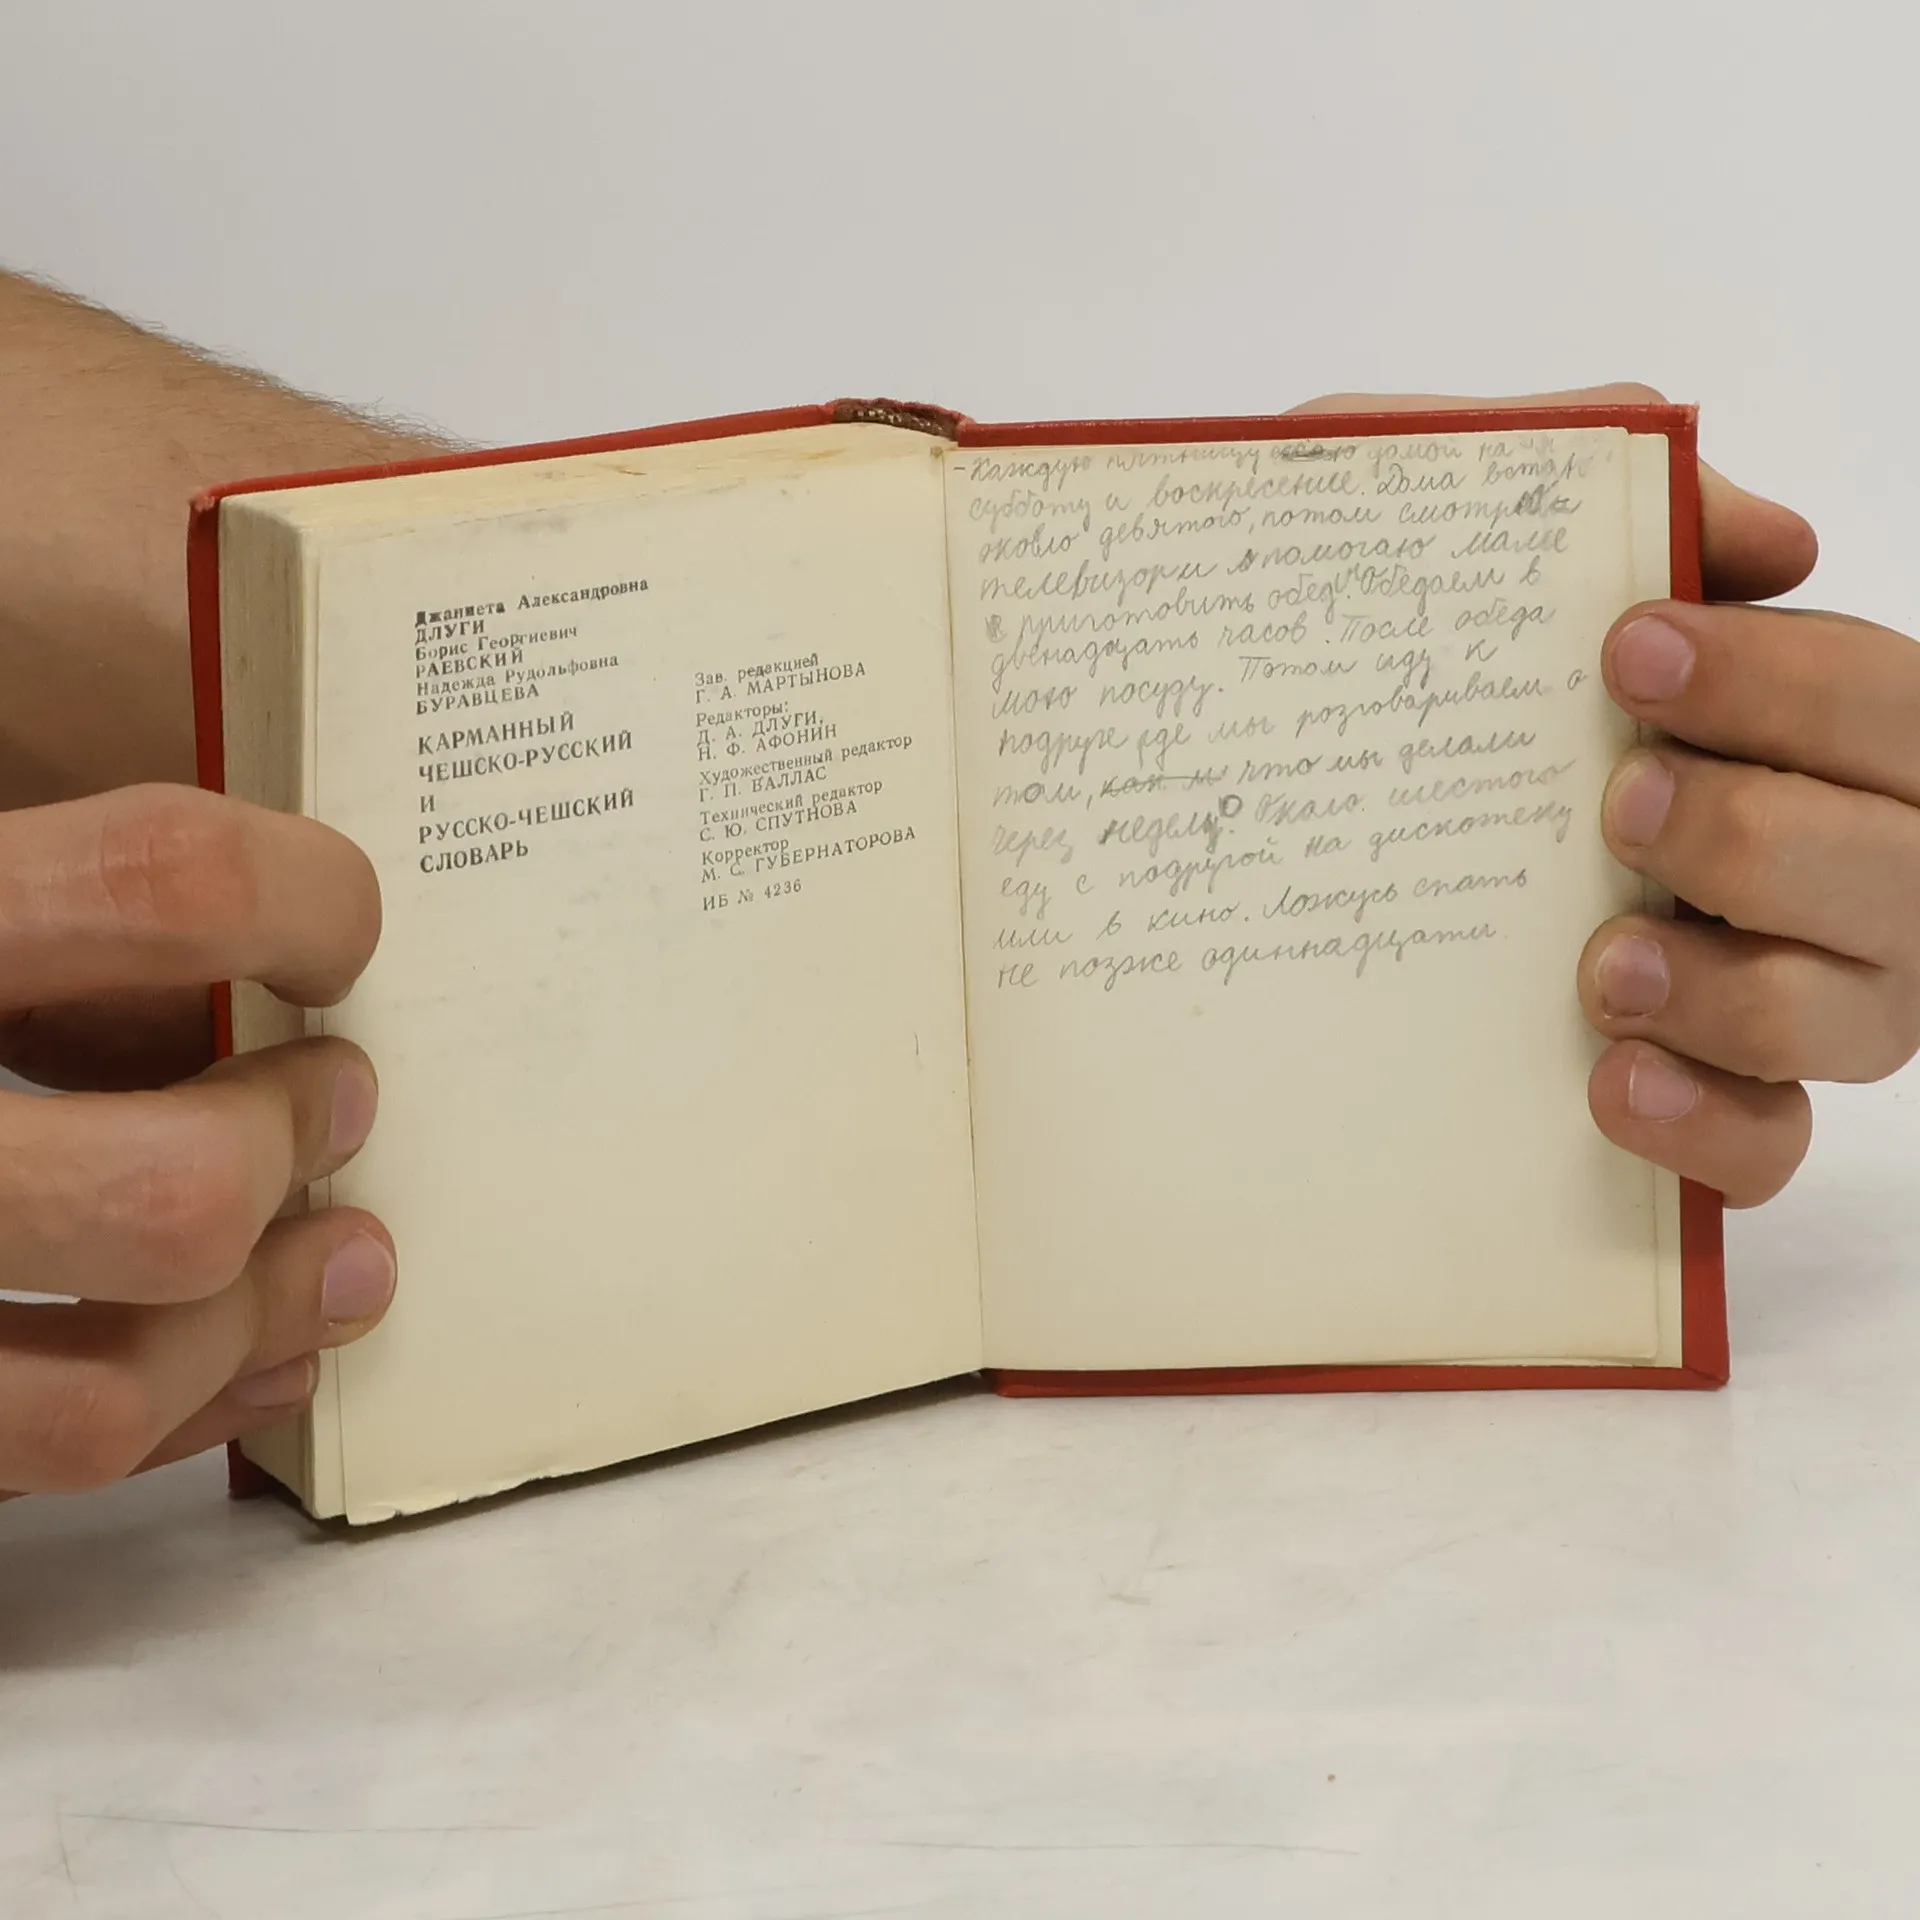 Джаннета Александровна
ДЛУГИ
Борис Георгиевич
РАЕВСКИЙ
Надежда Рудольфовна
БУРАВЦЕВА
КАРМАННЫЙ
ЧЕШСКО-РУССКИЙ
И
РУССКО-ЧЕШСКИЙ
СЛОВАРЬ
Зав. редакцией
Г. А. МАРТЫНОВА
Редакторы:
Д. А. ДЛУГИ,
Н. Ф. АФОНИН
Художественный редактор
Г. П. ВАЛЛАС
Технический редактор
С. Ю. СПУТНОВА
Корректор
М. С. ГУБЕРНАТОРОВА
ИБ № 4236
- Каждую пятницу домой на
субботу и воскресение. Дома встаю
около девятого, потом смотрю
телевизор и помогаю маме
приготовить обед. Обедаем в
двенадцать часов. После обеда
мою посуду. Потом иду к
подруге где мы розговариваем о
том, как м что мы делали
через неделю. Около шестого
еду с подругой на дискотеку
или в кино. Ложусь спать
не позже одиннадцати.